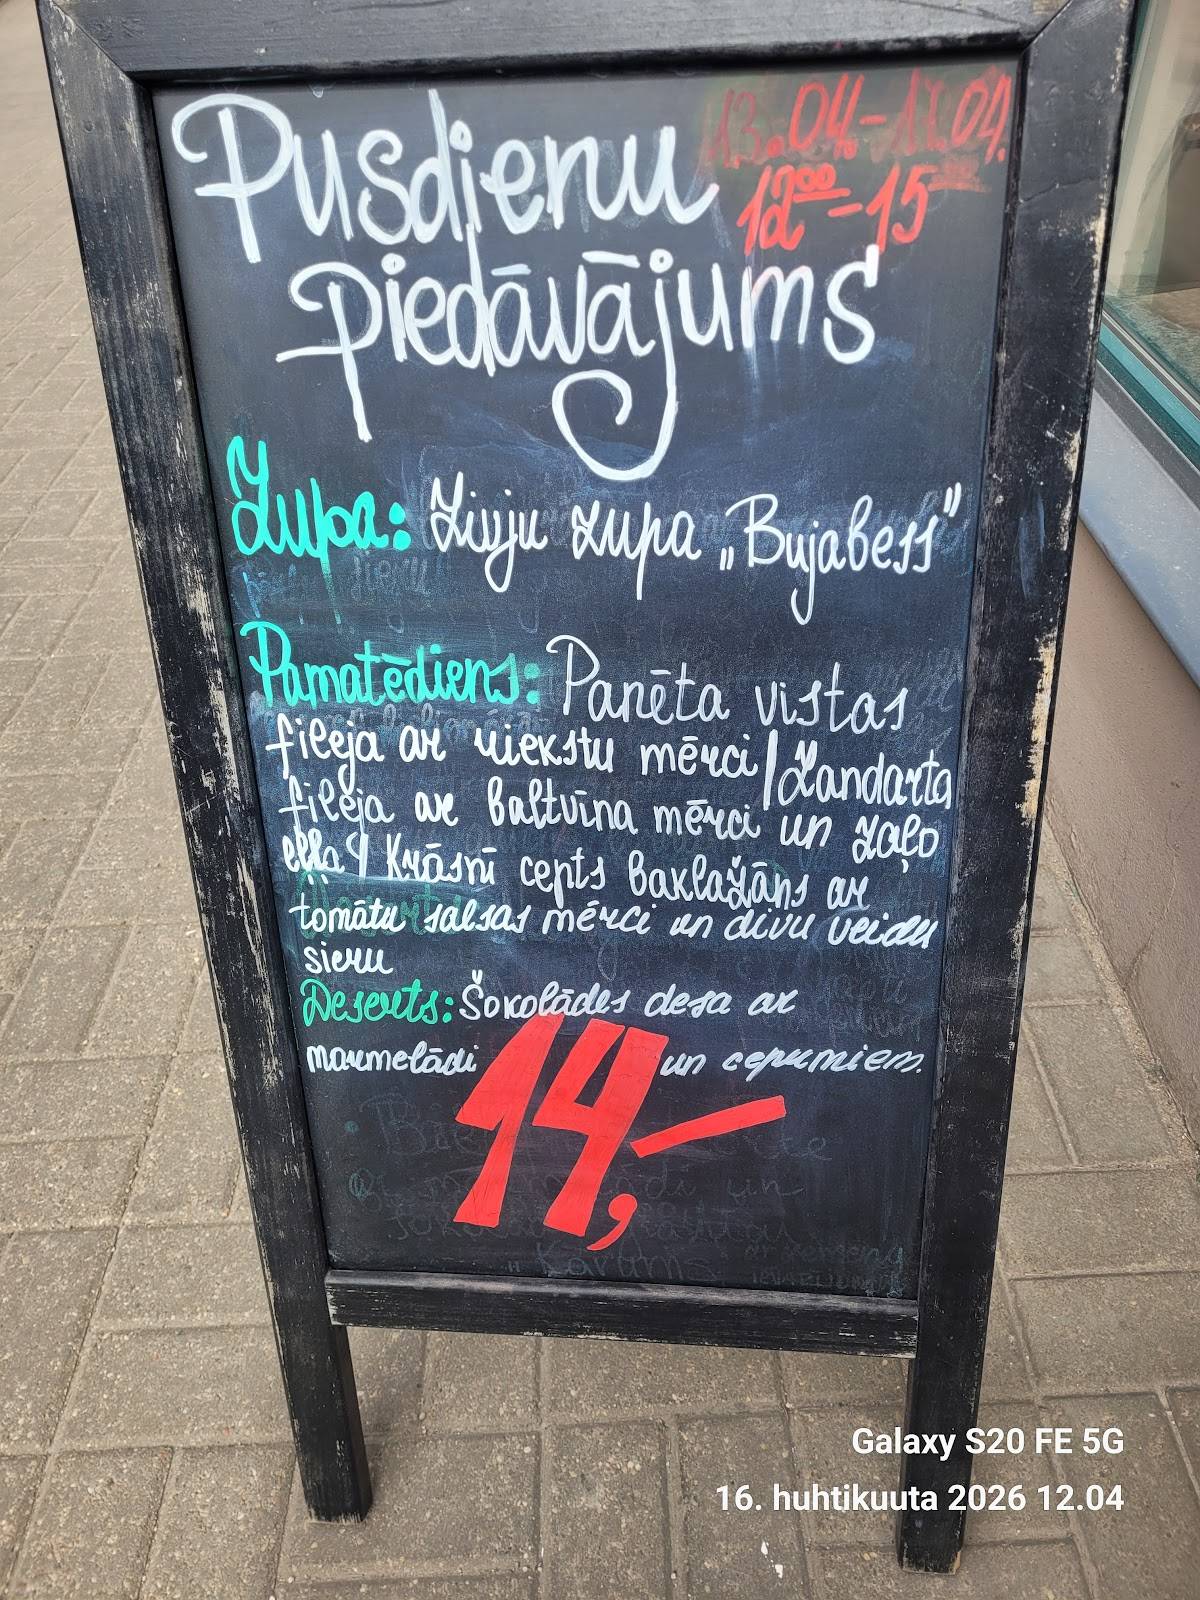 Pusdienu
13.04-17.04.
12⁰⁰-15⁰⁰
piedāvājums
Zupa: Zivju zupa „Bujabess"
Pamatēdiens: Panēta vistas
fileja ar riekstu mērci/Zandarta
fileja ar baltvīna mērci un zaļo
eļļa/ Krāsnī cepts baklažāns ar
tomātu salsas mērci un divu veidu
sieru
Deserts: Šokolādes desa ar
marmelādi un cepumiem.
14,-
Galaxy S20 FE 5G
16. huhtikuuta 2026 12.04